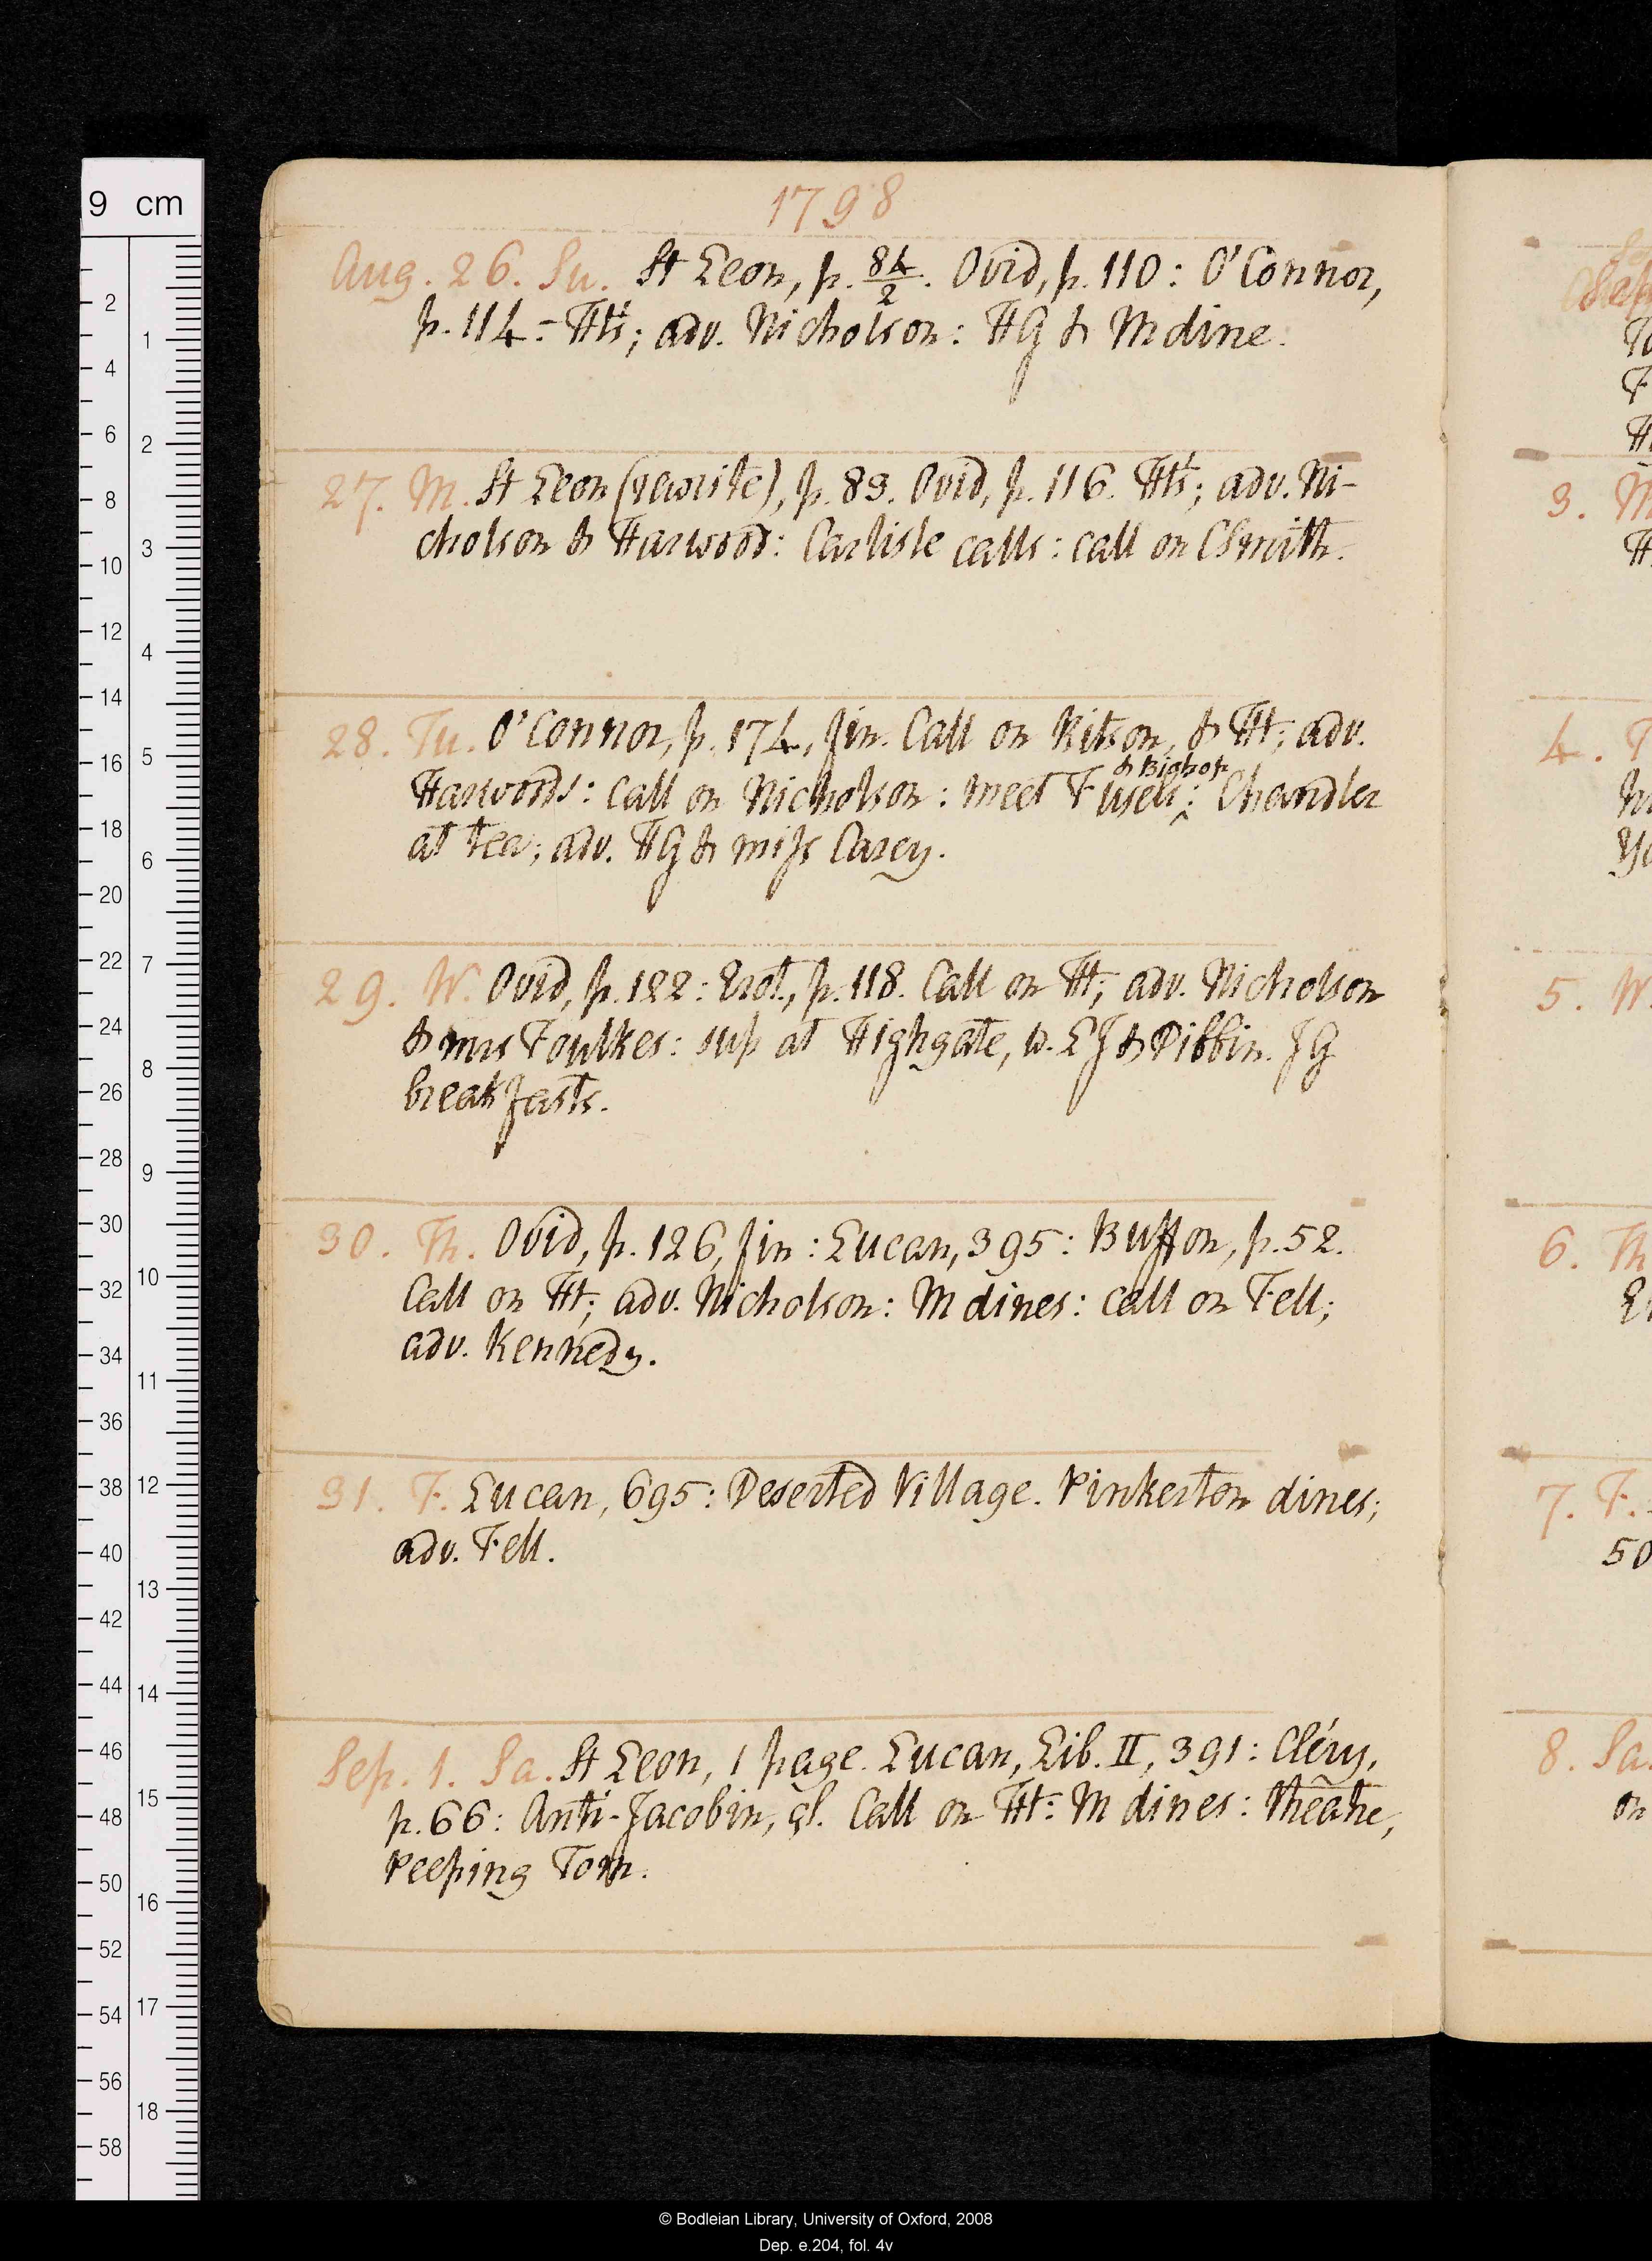 1798
Aug. 26. Su. St Leon, p. 84/2. Ovid, p. 110: O'Connor,
p. 114. – Hts; adv. Nicholson: HG & M dine.
27. M. St Leon (rewrite), p. 83. Ovid, p. 116. Hts; adv. Ni-
cholson & Harwood: Carlisle calls: call on CSmith.
28. Tu. O'Connor, p. 174, fin. Call on Ritson, & Ht; adv.
Harwoods: call on Nicholson: meet Fuseli & Bishop: Chandler
at tea; adv. HG & miss Carey.
29. W. Ovid, p. 122: Erot., p. 118. Call on Ht; adv. Nicholson
& mrs Foulkes: sup at Highgate, w. LJ & Dibbin. JG
breakfasts.
30. Th. Ovid, p. 126, fin: Lucan, 395: Buffon, p. 52.
Call on Ht; adv. Nicholson: M dines: call on Fell;
adv. Kennedy.
31. F. Lucan, 695: Deserted Village. Pinkerton dines;
adv. Fell.
Sep. 1. Sa. St Leon, 1 page. Lucan, Lib. II, 391: Cléry,
p. 66: Anti-Jacobin, çl. Call on Ht: M dines: Theatre,
Peeping Tom.
3. M
4. T
5. W
6. Th
7. F.
50
8. Sa.
on
9 cm
2
4
6
8
10
12
14
16
18
20
22
24
26
28
30
32
34
36
38
40
42
44
46
48
50
52
54
56
58
1
2
3
4
5
6
7
8
9
10
11
12
13
14
15
16
17
18
© Bodleian Library, University of Oxford, 2008
Dep. e.204, fol. 4v